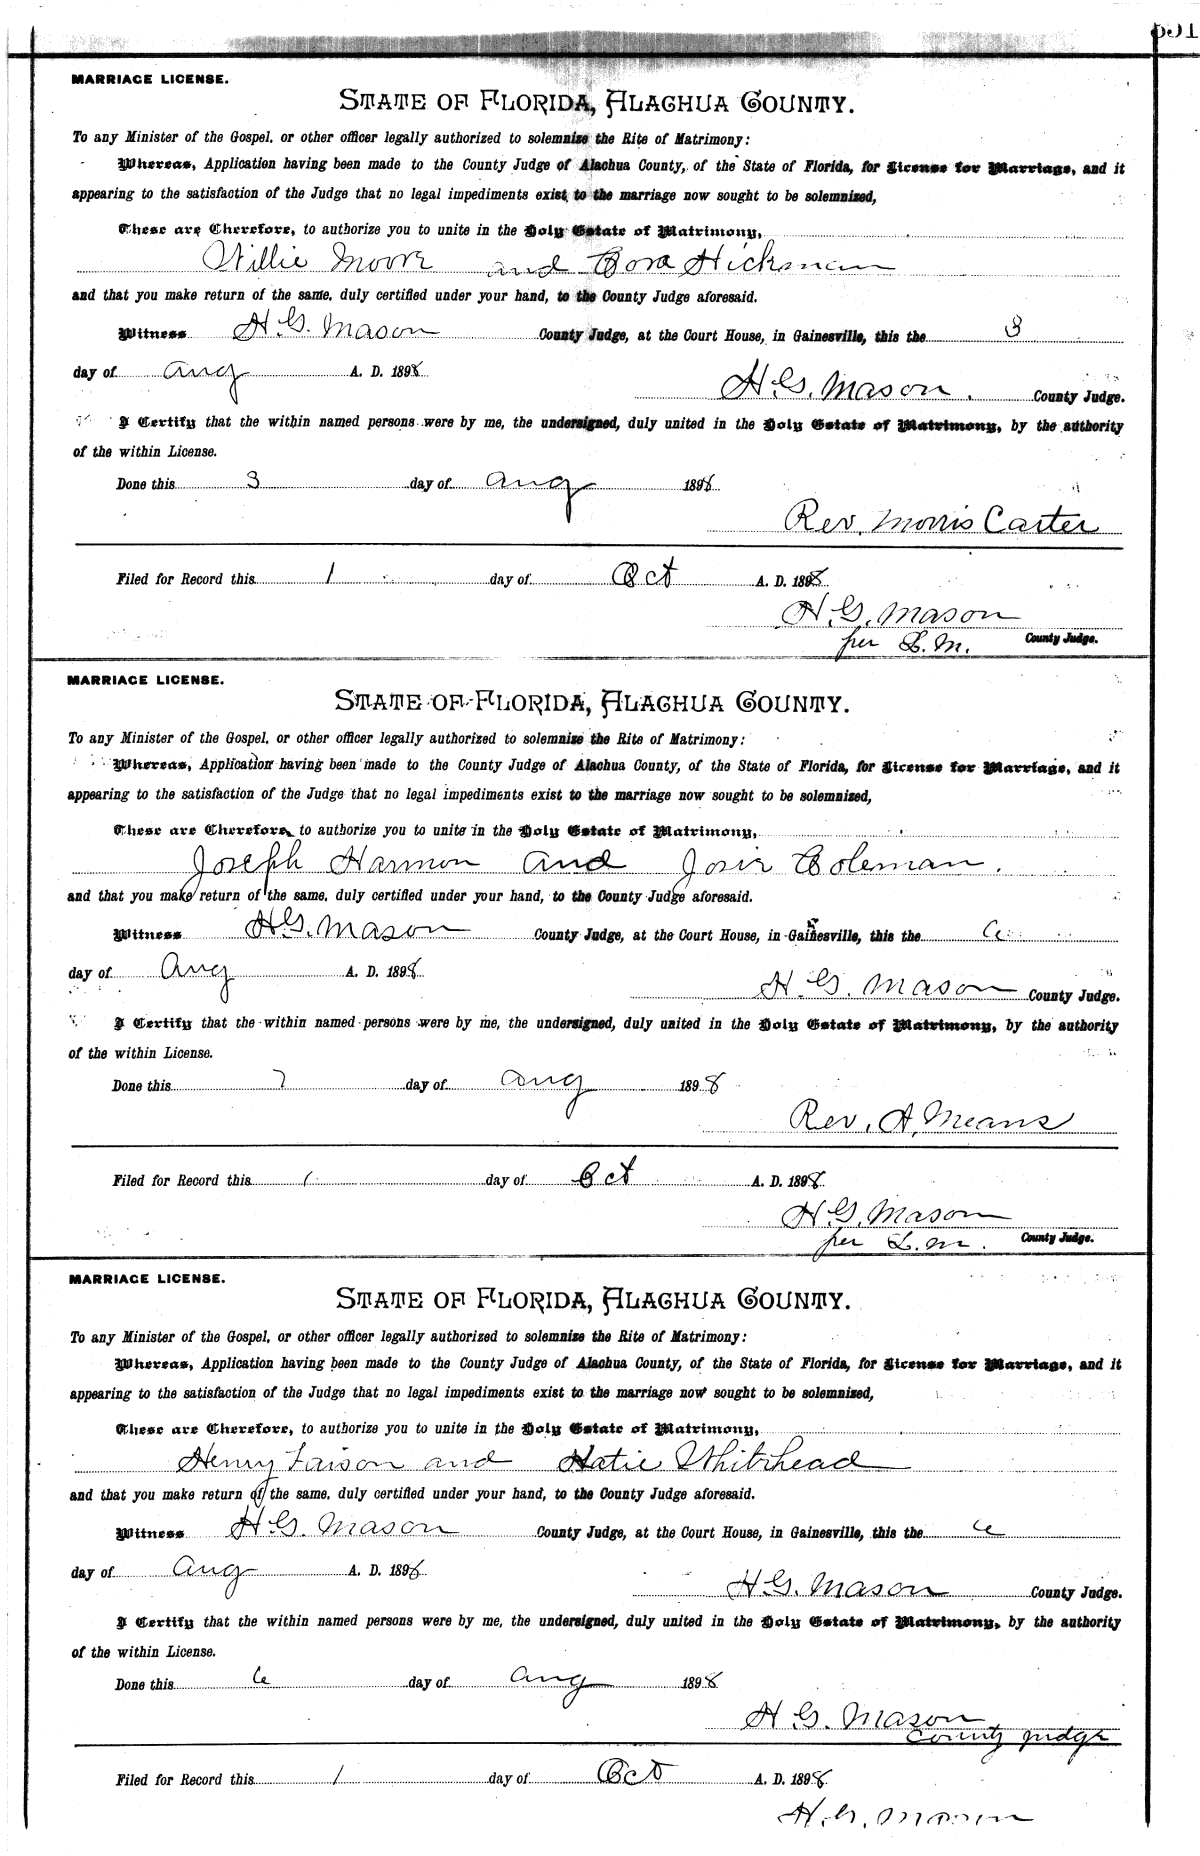 MARRIAGE LICENSE.
STATE OF FLORIDA, ALACHUA COUNTY.
To any Minister of the Gospel, or other officer legally authorized to solemnize the Rite of Matrimony:
Whereas, Application having been made to the County Judge of Alachua County, of the State of Florida, for License for Marriage, and it
appearing to the satisfaction of the Judge that no legal impediments exist to the marriage now sought to be solemnized,
These are Therefore, to authorize you to unite in the Holy Estate of Matrimony,
Willie Moore and Cora Hickman
and that you make return of the same, duly certified under your hand, to the County Judge aforesaid.
Witness H. G. Mason County Judge, at the Court House, in Gainesville, this the 3
day of Aug A. D. 1898
H. G. Mason. County Judge.
I Certify that the within named persons were by me, the undersigned, duly united in the Holy Estate of Matrimony, by the authority
of the within License.
Done this 3 day of Aug 1898
Rev. Morris Carter
Filed for Record this 1 day of Oct A. D. 1898
H. G. Mason
per L. M. County Judge.
MARRIAGE LICENSE.
STATE OF FLORIDA, ALACHUA COUNTY.
To any Minister of the Gospel, or other officer legally authorized to solemnize the Rite of Matrimony:
Whereas, Application having been made to the County Judge of Alachua County, of the State of Florida, for License for Marriage, and it
appearing to the satisfaction of the Judge that no legal impediments exist to the marriage now sought to be solemnized,
These are Therefore, to authorize you to unite in the Holy Estate of Matrimony,
Joseph Harmon and Josie Coleman.
and that you make return of the same, duly certified under your hand, to the County Judge aforesaid.
Witness H. G. Mason County Judge, at the Court House, in Gainesville, this the 6
day of Aug A. D. 1898
H. G. Mason County Judge.
I Certify that the within named persons were by me, the undersigned, duly united in the Holy Estate of Matrimony, by the authority
of the within License.
Done this 7 day of Aug 1898
Rev. A. Means
Filed for Record this 1 day of Oct A. D. 1898
H. G. Mason
per L. M. County Judge.
MARRIAGE LICENSE.
STATE OF FLORIDA, ALACHUA COUNTY.
To any Minister of the Gospel, or other officer legally authorized to solemnize the Rite of Matrimony:
Whereas, Application having been made to the County Judge of Alachua County, of the State of Florida, for License for Marriage, and it
appearing to the satisfaction of the Judge that no legal impediments exist to the marriage now sought to be solemnized,
These are Therefore, to authorize you to unite in the Holy Estate of Matrimony,
Henry Faison and Katie Whitehead
and that you make return of the same, duly certified under your hand, to the County Judge aforesaid.
Witness H. G. Mason County Judge, at the Court House, in Gainesville, this the 6
day of Aug A. D. 1898
H. G. Mason County Judge.
I Certify that the within named persons were by me, the undersigned, duly united in the Holy Estate of Matrimony, by the authority
of the within License.
Done this 6 day of Aug 1898
H. G. Mason
County Judge
Filed for Record this 1 day of Oct A. D. 1898
H. G. Mason